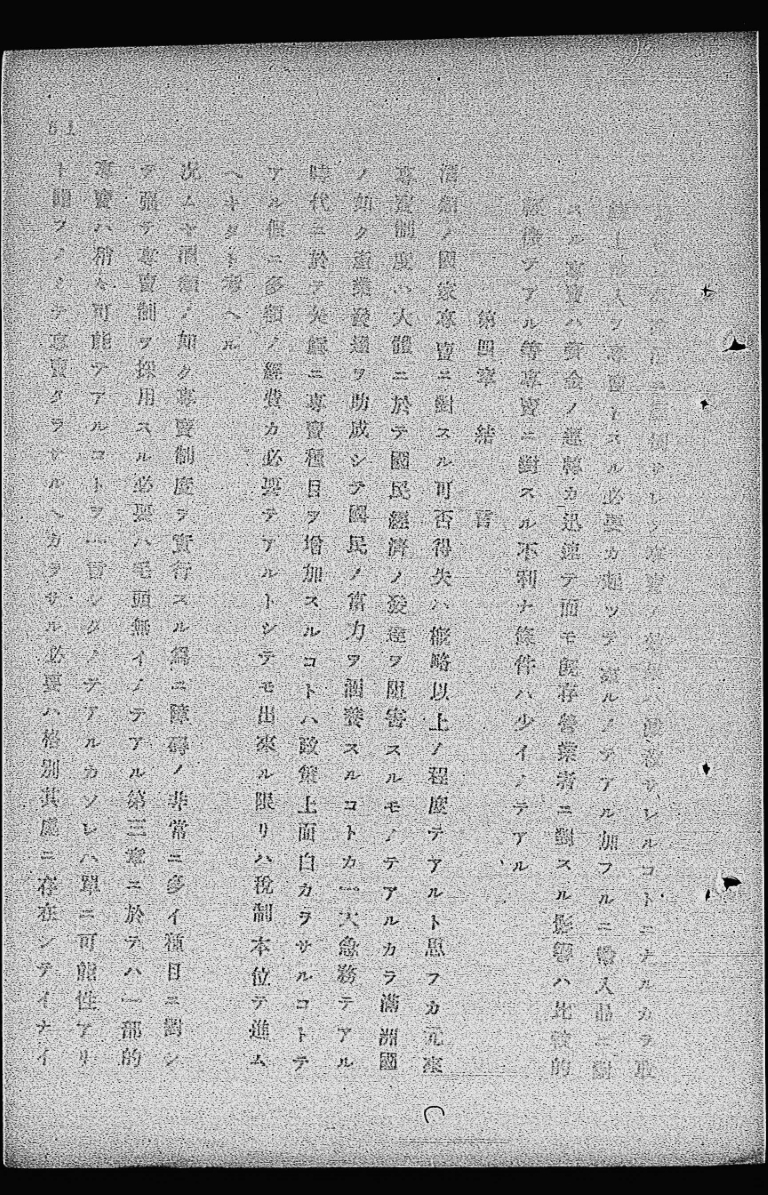 スル專賣ハ資金ノ運轉カ迅速テ而モ既存營業者ニ對スル影響ハ比較的
テアル等專賣ニ對スル不利ナ條件ハ少イノテアル
第四章 結 言
酒類ノ國家專賣ニ對スル可否得失ハ概略以上ノ程度テアルト思フカ元來
專賣制度ハ大體ニ於テ國民經濟ノ發達ヲ阻害スルモノテアルカラ滿洲國
ノ如ク產業發達ヲ助成シテ國民ノ富力ヲ涵養スルコトカ一大急務テアル
時代ニ於テ矢鱈ニ專賣種目ヲ增加スルコトハ政策上面白カラサルコトテ
アル假ニ多額ノ經費カ必要テアルトシテモ出來ル限リハ稅制本位テ進ム
ヘキタト考ヘル
況ムヤ酒類ノ如ク專賣制度ヲ實行スル爲ニ障碍ノ非常ニ多イ種目ニ對シ
テ張テ專賣制ヲ採用スル必要ハ毛頭無イノテアル第三章ニ於テハ一部的
專賣ハ稍々可能テアルコトヲ一言シタノテアルカソレハ單ニ可能性アリ
ト謂フノミテ專賣タラサルヘカラサル必要ハ格別其處ニ存在シテイナイ